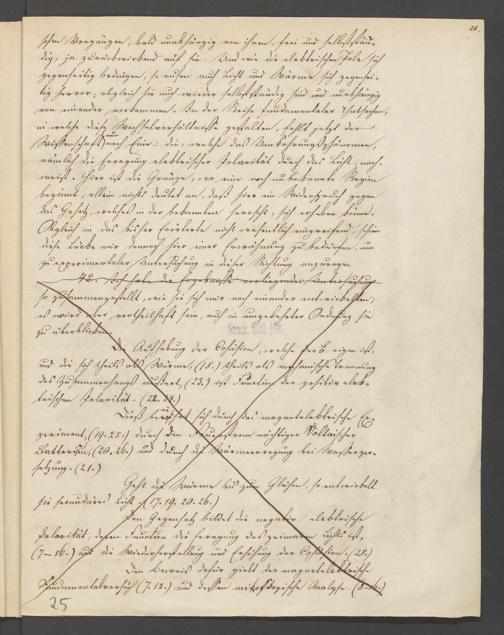 28.
schen Vorgängen, bald unabhängig von ihnen, frei und selbststän-
dig, ja zurückwirkend auf sie. Und wie die elektrischen Pole sich
gegenseitig bedingen, so rufen auch Licht und Wärme sich gegensei-
tig hervor; obgleich sie auch wieder selbstständig sind und unabhängig
von einander vorkommen. In der Reihe fundamentaler Thatsachen,
in welche diese Wechselverhältnisse gestalten, fehlt jetzt der
Wissenschaft nur noch Eine: die, welche das Umkehrungsphänomen,
nämlich die Erregung elektrischer Polarität durch das Licht, nach-
weist. Hier ist die Gränze, wo eine noch unbekannte Region
beginnt; allein nichts deutet an, daß hier ein Widerspruch gegen
das Gesetz, welches in der bekannten herrscht, sich erheben könne.
Obgleich in das bisher Erörterte nicht wesentlich eingreifend, schien
diese Lücke mir dennoch hier einer Erwähnung zu bedürfen, um
zu experimentaler Untersuchung in dieser Richtung anzuregen.
42. Ich habe die Ergebnisse vorliegender Untersuchung
so zusammengestellt, wie sie sich mir nach einander entwickelten;
es wird aber vortheilhaft sein, auch in umgekehrter Ordnung sie
zu überblicken.
Die Aufhebung der Cohäsion, welche + E eigen ist,
und die sich theils als Wärme, (18.) theils als mechanische Trennung
des Zusammenhangs äußert, (23.) ist Funktion der positiv elek-
trischen Polarität. (22. 24.)
Dieß bewährt sich durch das magnetelektrische Ex-
periment, (19. 25.) durch den Feuerstrom mächtiger Voltaischer
Batterien, (20. 26.) und durch die Wärmeerregung bei Wasserzer-
setzung. (21.)
Geht die Wärme bis zum Glühen, so entwickelt
sie secundäres Licht. (17. 19. 20. 26.)
Den Gegensatz bildet die negativ elektrische
Polarität, deren Funktion die Erregung des primären Lichts ist,
(7–16.) und die Wiederherstellung und Erhöhung der Cohäsion. (28.)
Den Beweis dafür giebt der magnetelektrische
Fundamentalversuch (7. 12.) und dessen mikroskopische Analyse (8–16.)
25